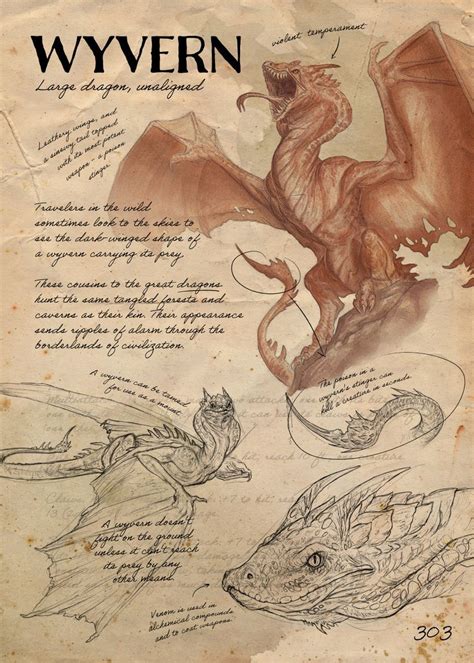 WYVERN
Large dragon, unaligned
violent temperament
Leathery wings, and
a sinewy tail topped
with its most potent
weapon - a poison
stinger.
Travelers in the wild
sometimes look to the skies to
see the dark-winged shape of
a wyvern carrying its prey.
These cousins to the great dragons
hunt the same tangled forests and
caverns as their kin. Their appearance
sends ripples of alarm through the
borderlands of civilization.
The poison in a
wyvern's stinger can
kill a creature in seconds.
A wyvern can be tamed
for use as a mount.
A wyvern doesn't
fight on the ground
unless it can't reach
its prey by any
other means.
Venom is used in
alchemical compounds
and to coat weapons.
303